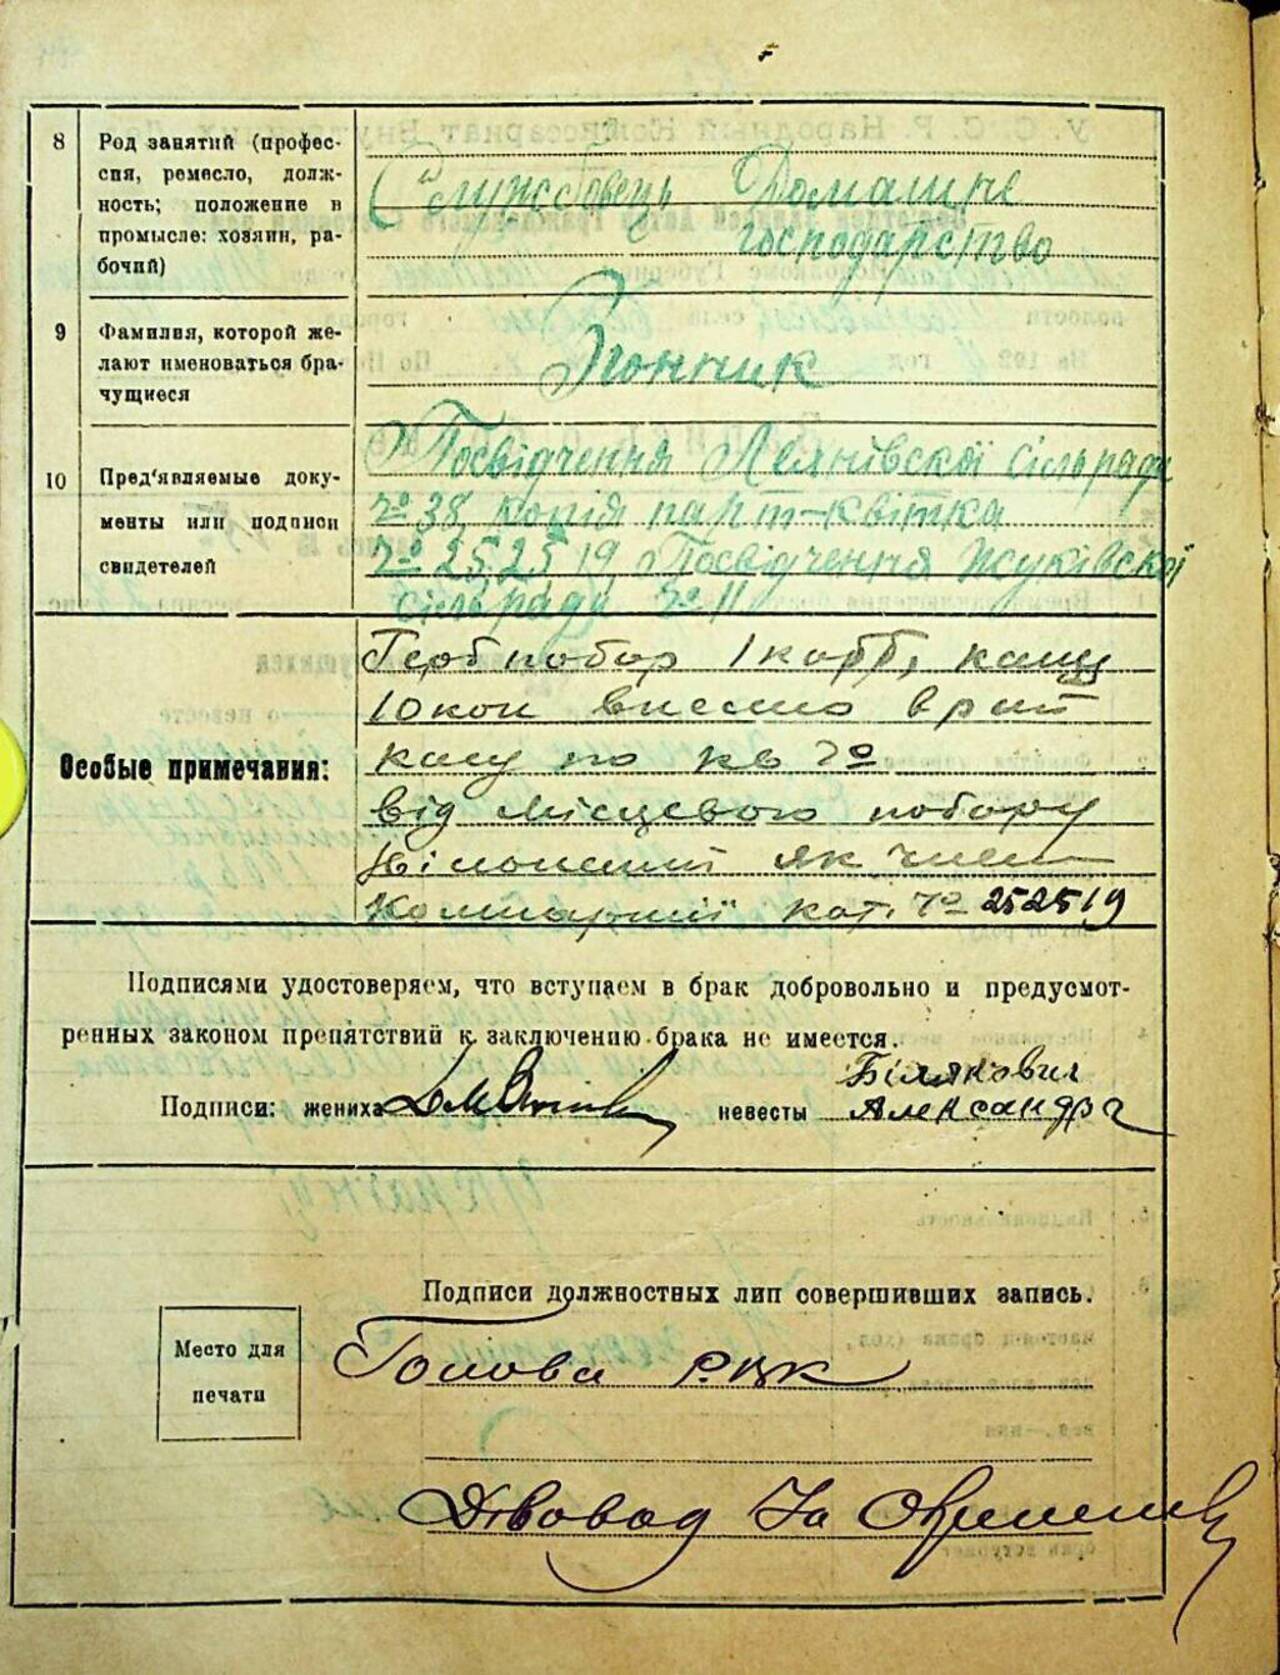 8
Род занятий (профес-
сия, ремесло, долж-
ность; положение в
промысле: хозяин, ра-
бочий)
Службовець Домашнє
господарство
9
Фамилия, которой же-
лают именоваться бра-
чущиеся
10
Пред'являемые доку-
менты или подписи
свидетелей
Посвідчення сільради
№ 38 копія парт-квітка
№ 252519 Посвідчення Жуківскої
сільради № 11
Особые примечания:
Герб побор 1 карб, канц
10 коп внесено в рай
касу по кв №
від місцевого побору
як член
Компартії кат. № 252519
Подписями удостоверяем, что вступаем в брак добровольно и предусмот-
ренных законом препятствий к заключению брака не имеется.
Подписи: жениха
невесты
Білякович
Александра
Подписи должностных лип совершивших запись.
Место для
печати
Голова РВК
Діловод